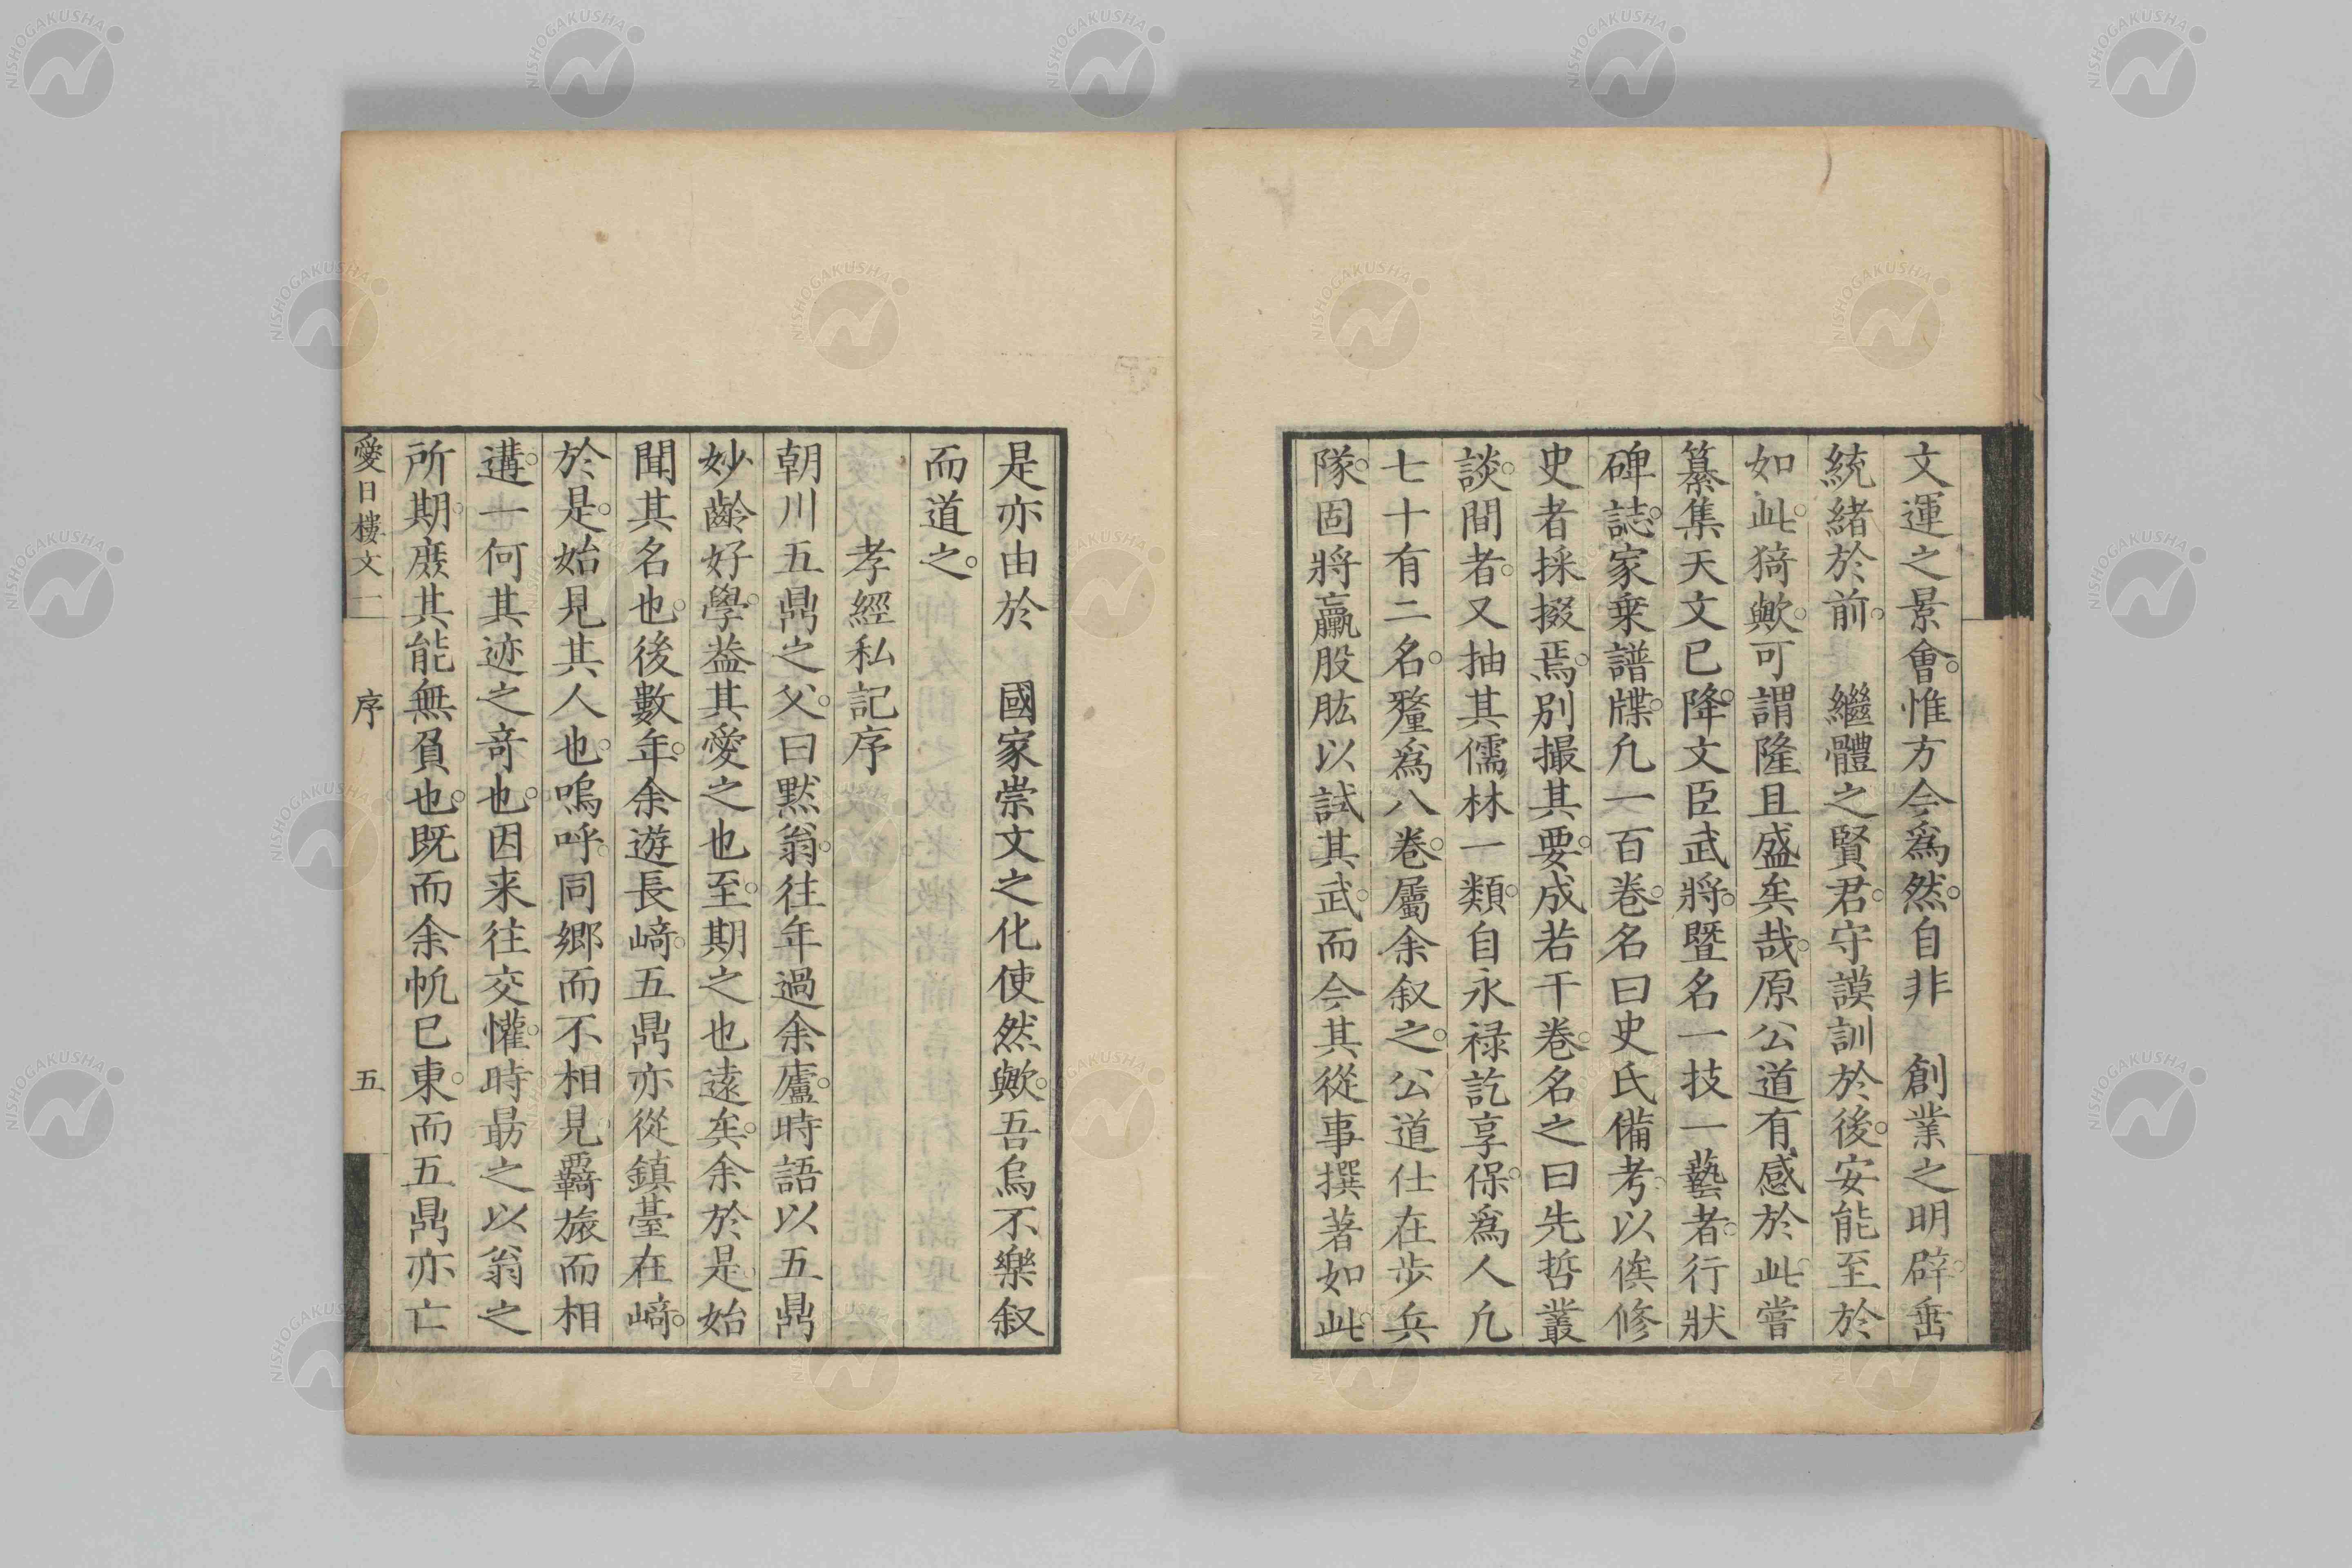 文運之景會。惟方今爲然。自非　創業之明辟。埀
統緒於前。　繼體之賢君。守謨訓於後。安能至於
如此。猗歟。可謂隆且盛矣哉。原公道有感於此。嘗
纂集天文已降。文臣武將。曁名一技一藝者。行狀
碑誌。家乗譜牒。凢一百卷。名曰史氏備考。以俟修
史者採掇焉。別撮其要。成若干卷。名之曰先哲叢
談。間者。又抽其儒林一類。自永禄訖享保。爲人凢
七十有二名。釐爲八卷。屬余叙之。公道仕在步兵
隊。固將贏股肱以試其武。而今其從事撰著如此。
是亦由於　國家崇文之化使然歟。吾烏不樂叙
而道之。
孝經私記序
朝川五鼎之父。曰黙翁。往年過余廬。時語以五鼎
妙齡好學。葢其愛之也至。期之也遠矣。余於是始
聞其名也。後數年。余遊長﨑。五鼎亦從鎮臺在﨑。
於是。始見其人也。嗚呼。同郷而不相見。覊旅而相
遘。一何其迹之奇也。因来徃交懽。時勗之以翁之
所期。庻其能無負也。既而余帆已東。而五鼎亦亡
愛日樓文一　序　五
NISHOGAKUSHA
NISHOGAKUSHA
NISHOGAKUSHA
NISHOGAKUSHA
NISHOGAKUSHA
NISHOGAKUSHA
NISHOGAKUSHA
NISHOGAKUSHA
NISHOGAKUSHA
NISHOGAKUSHA
NISHOGAKUSHA
NISHOGAKUSHA